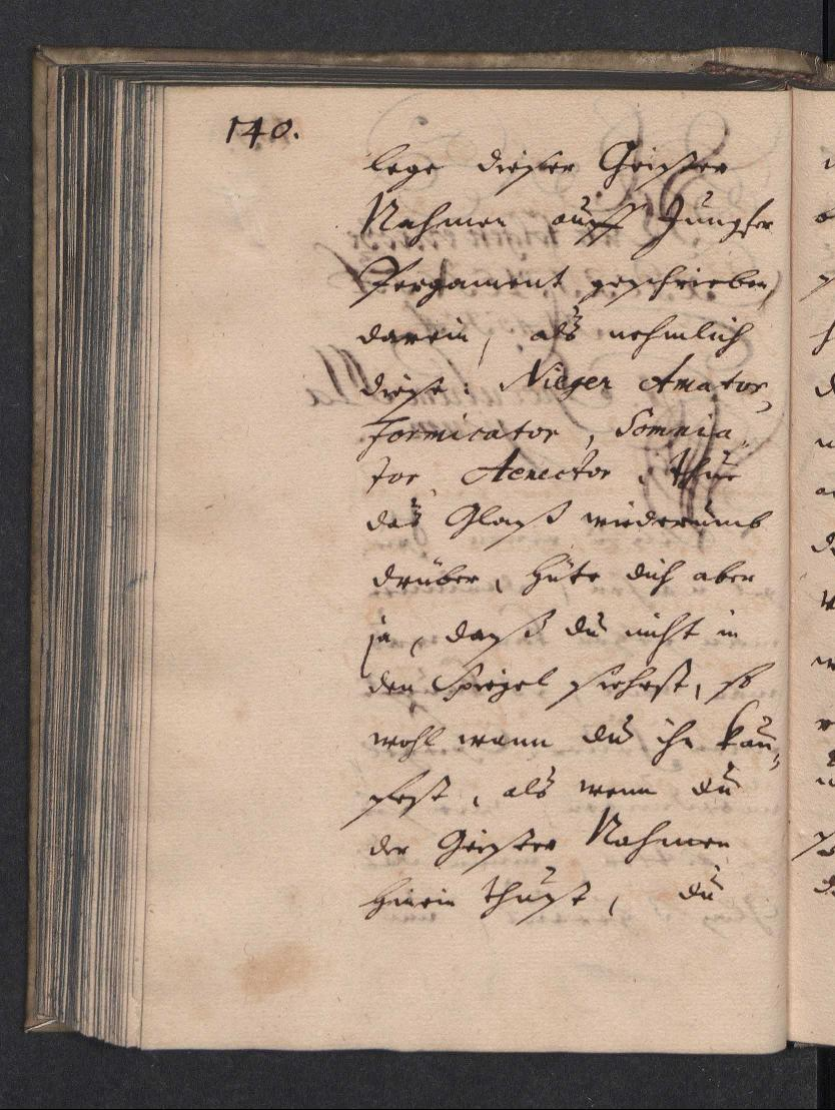 140.
lege dießer Geister
Nahmen auff Jungfer
Pergament geschrieben,
darein, als nehmlich
diese: Nieger Amator,
Formicator, Somnia„
tor Aenector, thue
das Glaß wiederumb
drüber, hüte dich aber
ja, daß du nicht in
den Spiegel siehest, so
wohl wann du ihn kau„
fest, als wenn du
der Geister Nahmen
hinein thust, du